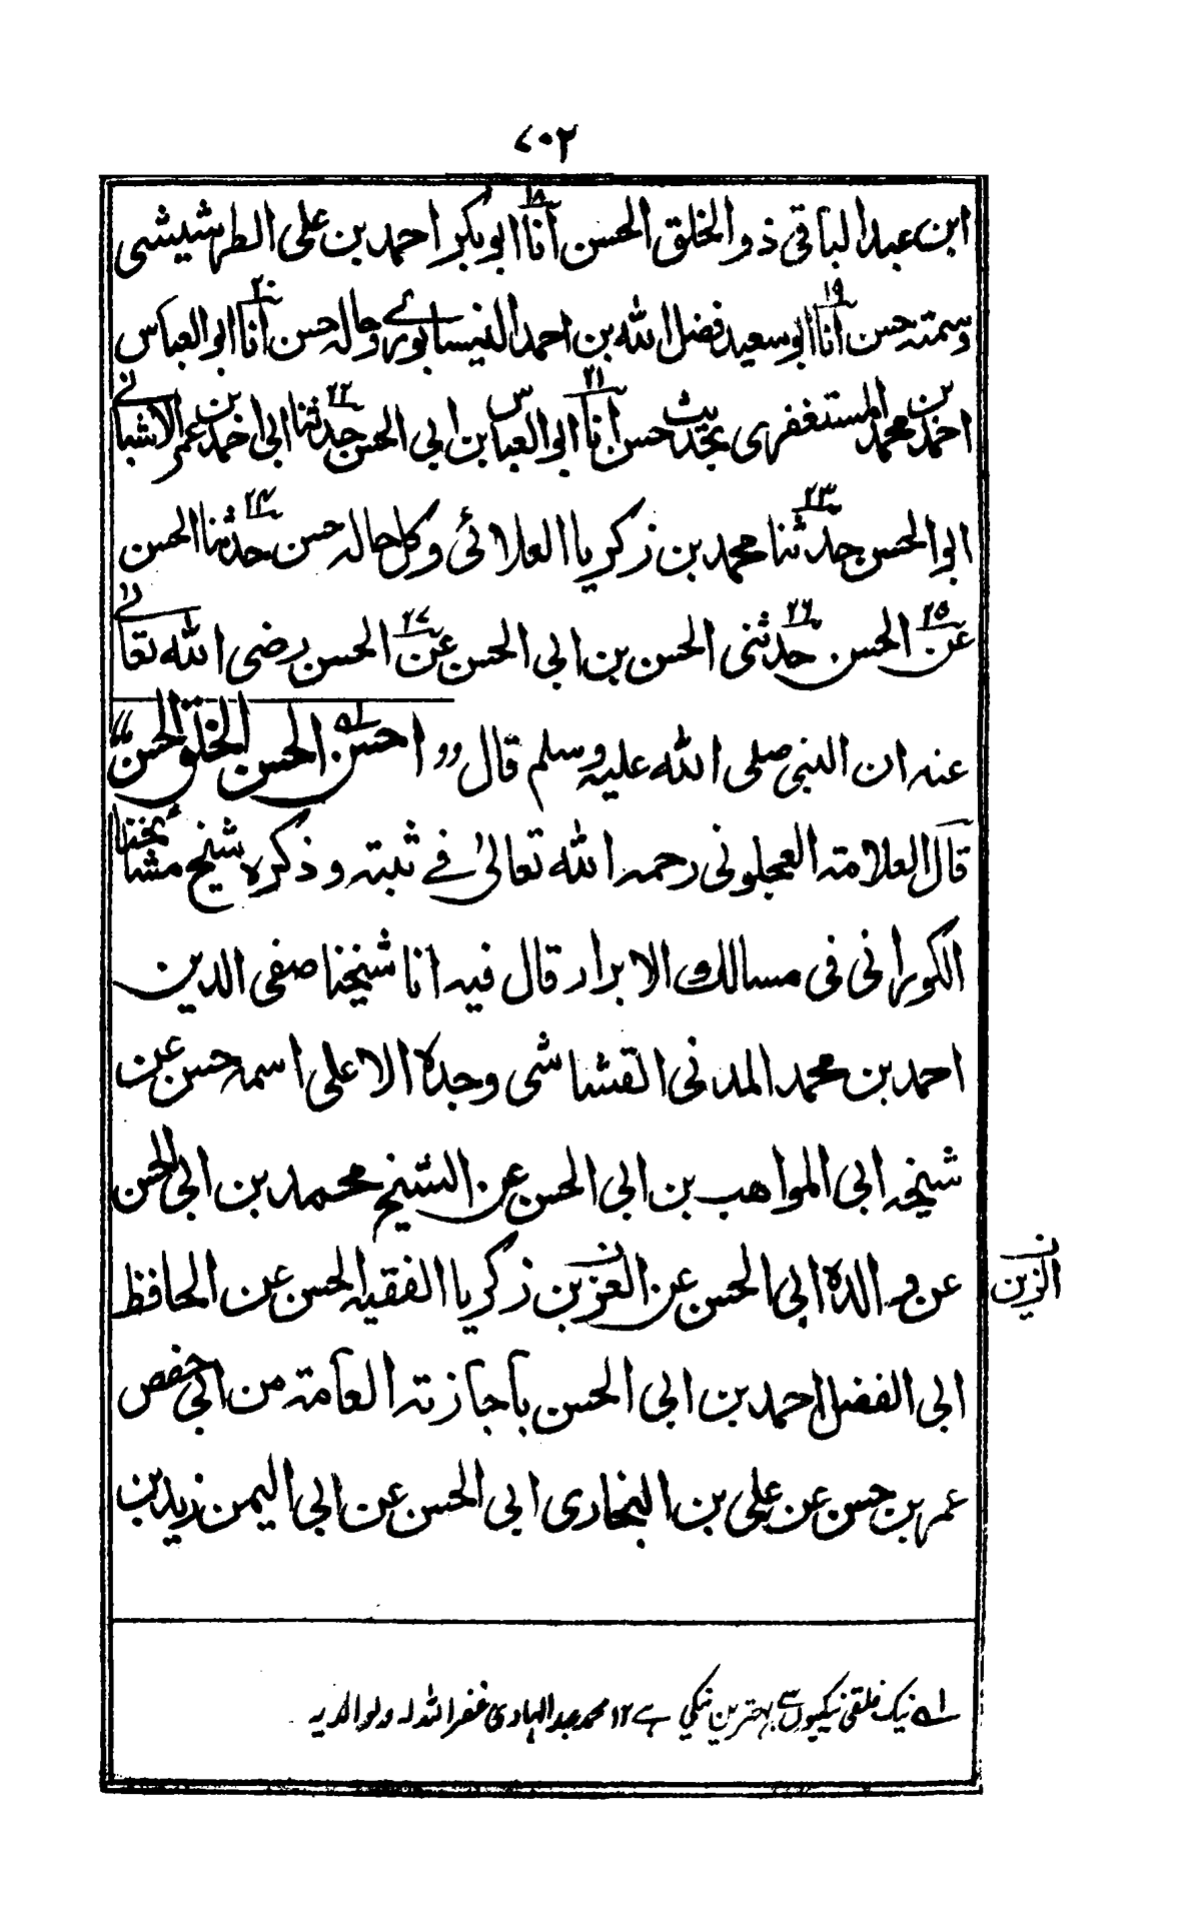 ٧٠٢
ابن عبدالباقی ذو الخلق الحسن ١٨ انا ابو بکر احمد بن علی الطرشیشی
وسمتہ حسن ١٩ انا ابو سعید فضل اللہ بن احمد النیسابوری وحالہ حسن ٢٠ انا ابو العباس
احمد بن محمد المستغفری بحدیث حسن ٢١ انا ابو العباس بن ابی الحسن ٢٢ حدثنا ابی احمد بن عمر الاشبانی
ابو الحسن ٢٣ حدثنا محمد بن زکریا العلائی وکل حالہ حسن ٢٤ حدثنا الحسن
٢٥ عن الحسن ٢٦ حدثنی الحسن بن ابی الحسن ٢٧ عن الحسن رضی اللہ تعالی
عنہ ان النبی صلی اللہ علیہ وسلم قال ”احسن ١ٖہ الحسن الخلق الحسن“
قال العلامۃ العجلونی رحمہ اللہ تعالیٰ فے ثبتہ وذکرہ شیخ مشائخنا
الکورانی فی مسالک الابرار قال فیہ انا شیخنا صفی الدین
احمد بن محمد المدنی القشاشی وجدہ الاعلی اسمہ حسن عن
شیخہ ابی المواھب بن ابی الحسن عن الشیخ محمد بن ابی الحسن
عن والدہ ابی الحسن عن العز بن زکریا الفقیہ الحسن عن الحافظ
الزین ن
ابی الفضل احمد بن ابی الحسن باجازتہ العامۃ من ابی حفص
عمر بن حسن عن علی بن البخاری ابی الحسن عن ابی الیمن زید بن
١ٖہ نیک خلقی نیکیوں سے بہترین نیکی ہے ١٢ محمد عبدالہادی غفر اللہ لہ ولوالدیہ